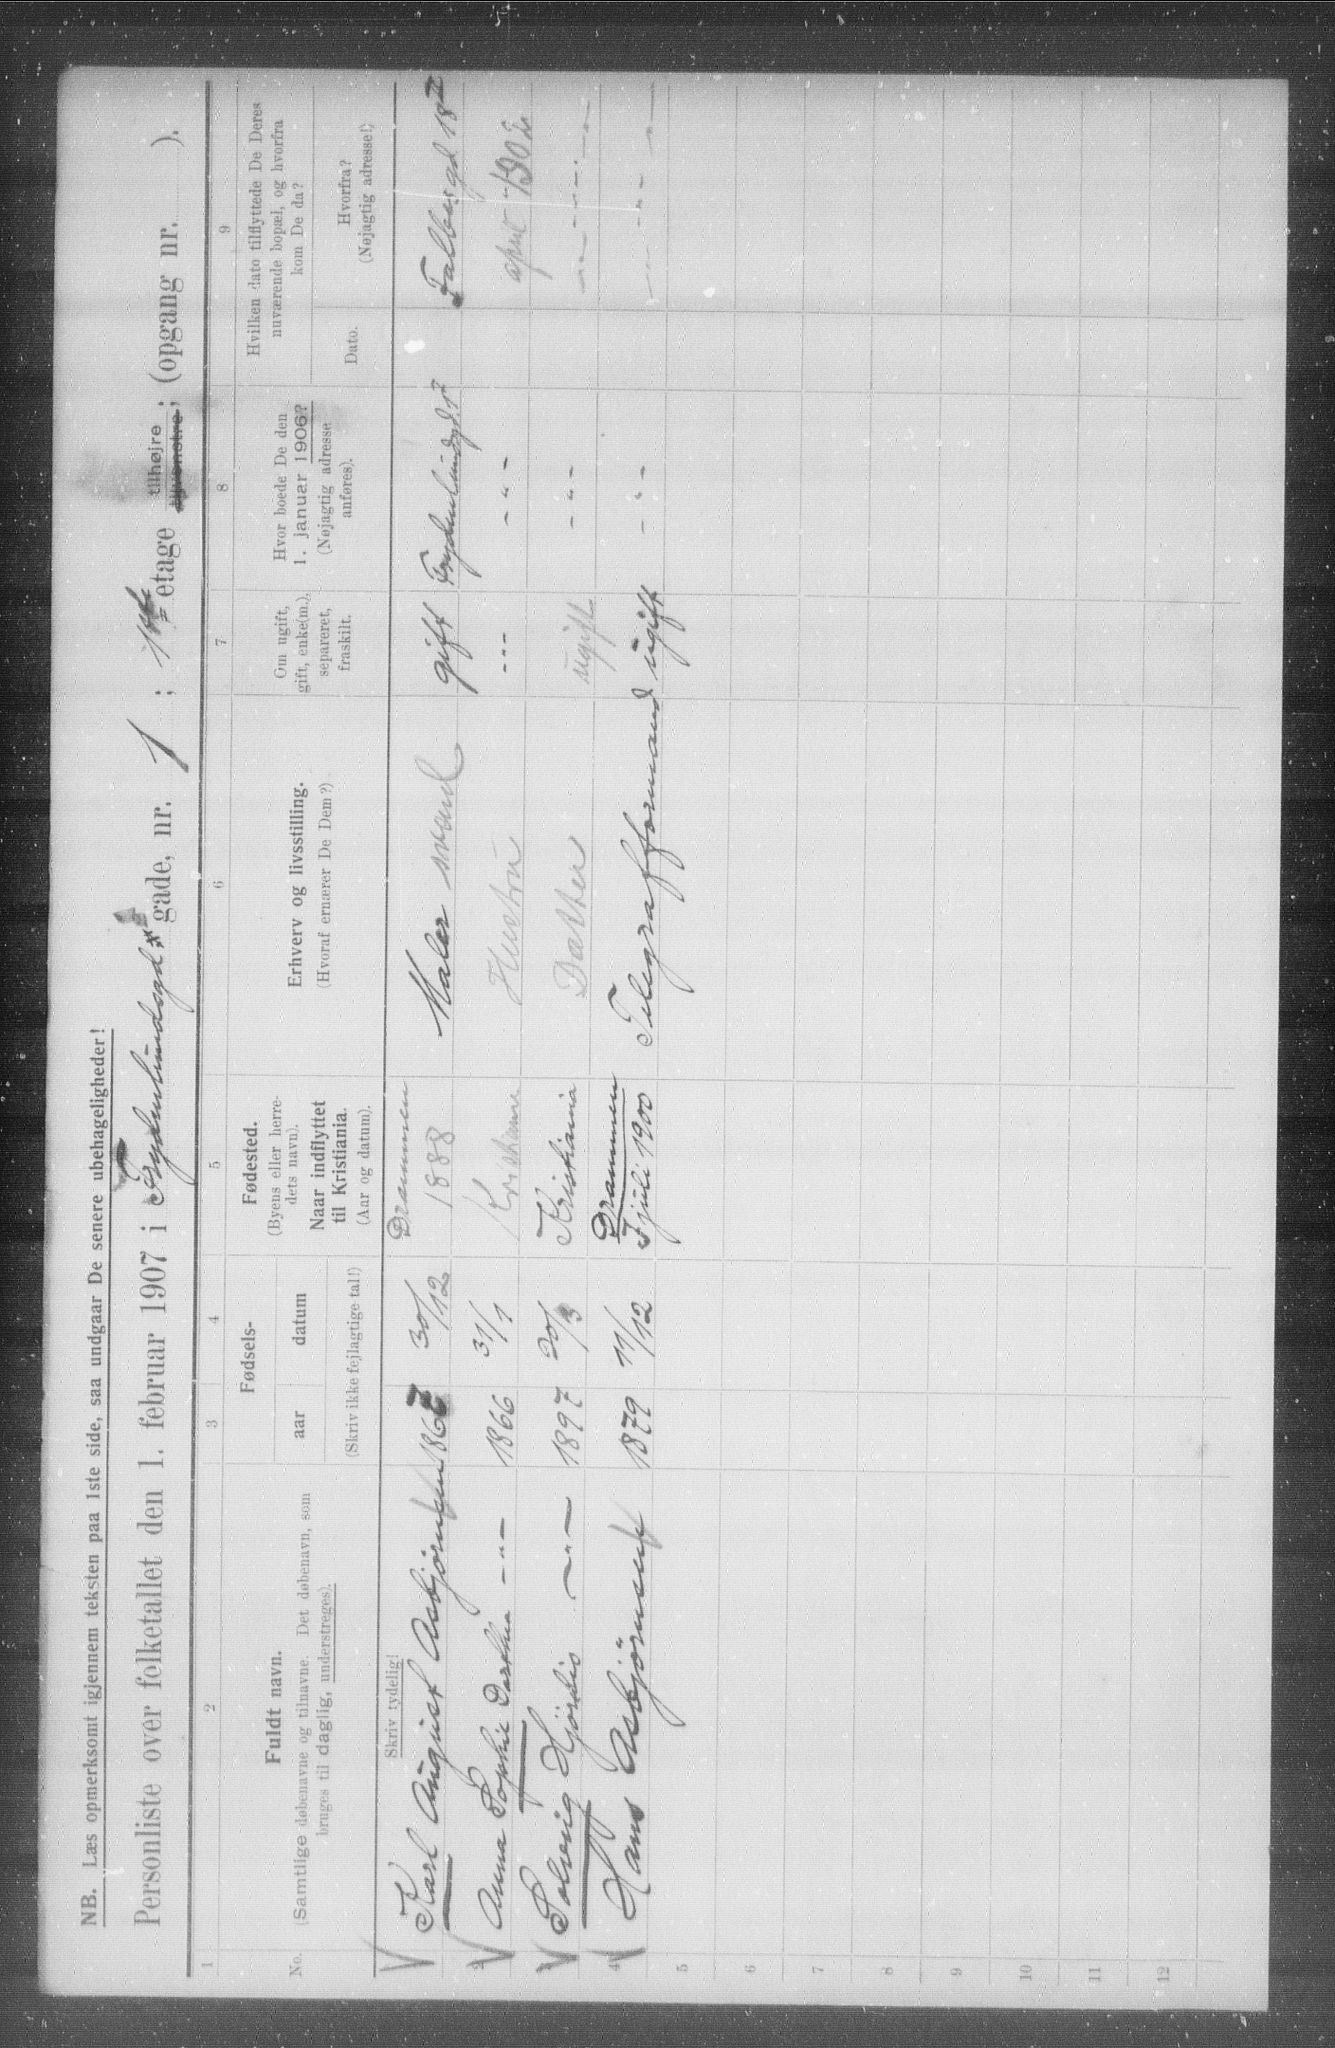 NB. Læs opmerksomt igjennem teksten paa 1ste side, saa undgaar De senere ubehageligheder!
Personliste over folketallet den 1. februar 1907 i Frydenlundsgd. gade, nr. 1 ; 1ste etage tilhøjre tilvenstre; (opgang nr. ).
1 2 3 4 5 6 7 8 9
No.
Fuldt navn.
(Samtlige døbenavne og tilnavne. Det døbenavn, som
bruges til daglig, understreges).
Fødsels-
aar datum
(Skriv ikke fejlagtige tal!)
Fødested.
(Byens eller herre-
dets navn).
Naar indflyttet
til Kristiania.
(Aar og datum).
Erhverv og livsstilling.
(Hvoraf ernærer De Dem?)
Om ugift,
gift, enke(m.),
separeret,
fraskilt.
Hvor boede De den
1. januar 1906?
(Nøjagtig adresse
anføres).
Hvilken dato tilflyttede De Deres
nuværende bopæl, og hvorfra
kom De da?
Dato.
Hvorfra?
(Nøjagtig adresse!)
Skriv tydelig!
Karl August Asbjörnsen 1867 30/12 Drammen 1888 Maler svend gift Frydenlundsgd. 1 Falbergd 18
2 Anna Sophie Dorthea -"- 1866 31/1 Kristiania Hustru -"- -"- april 1902
Solveig Hjördis -"- 1897 20/3 Kristiania Datter ugift -"- -"-
4 Hans Asbjörnsen 1879 11/12 Drammen juli 1900 Telegrafformand ugift -"- -"-
5
6
7
8
9
10
11
12